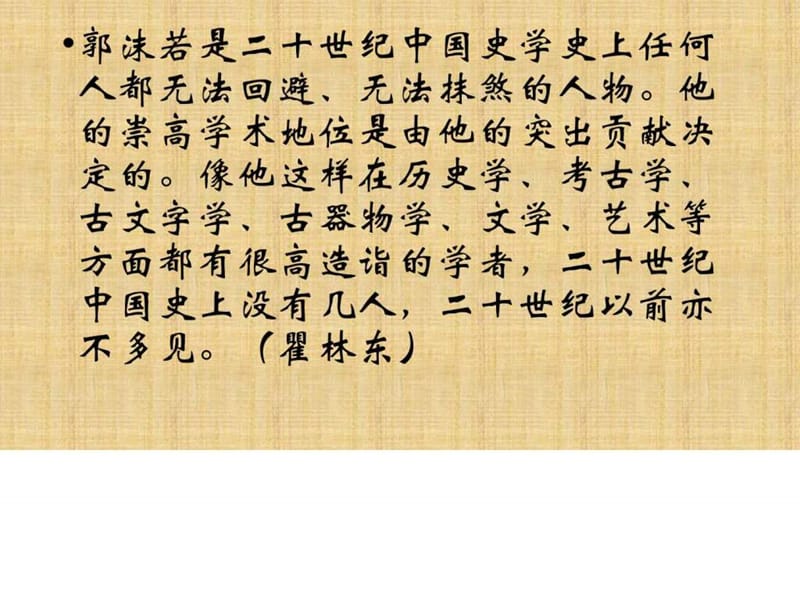 •郭沫若是二十世纪中国史学史上任何
人都无法回避、无法抹煞的人物。他
的崇高学术地位是由他的突出贡献决
定的。像他这样在历史学、考古学、
古文字学、古器物学、文学、艺术等
方面都有很高造诣的学者，二十世纪
中国史上没有几人，二十世纪以前亦
不多见。（瞿林东）